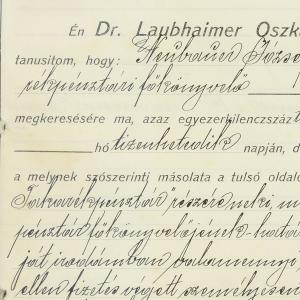 Én Dr. Laubhaimer Oszká
tanusitom, hogy: Neubauer Józse
rékpénztári főkönyvelő
megkeresésére ma, azaz egyezerkilenczszáz
hó tizenhetedik napján, d
a melynek szószerinti másolata a tulsó oldalo
Takarékpénztár" részére neki, m
pénztár főkönyvelőjének - hatá
ját irodámban valamennyi
ellen fizetés végett személyesen